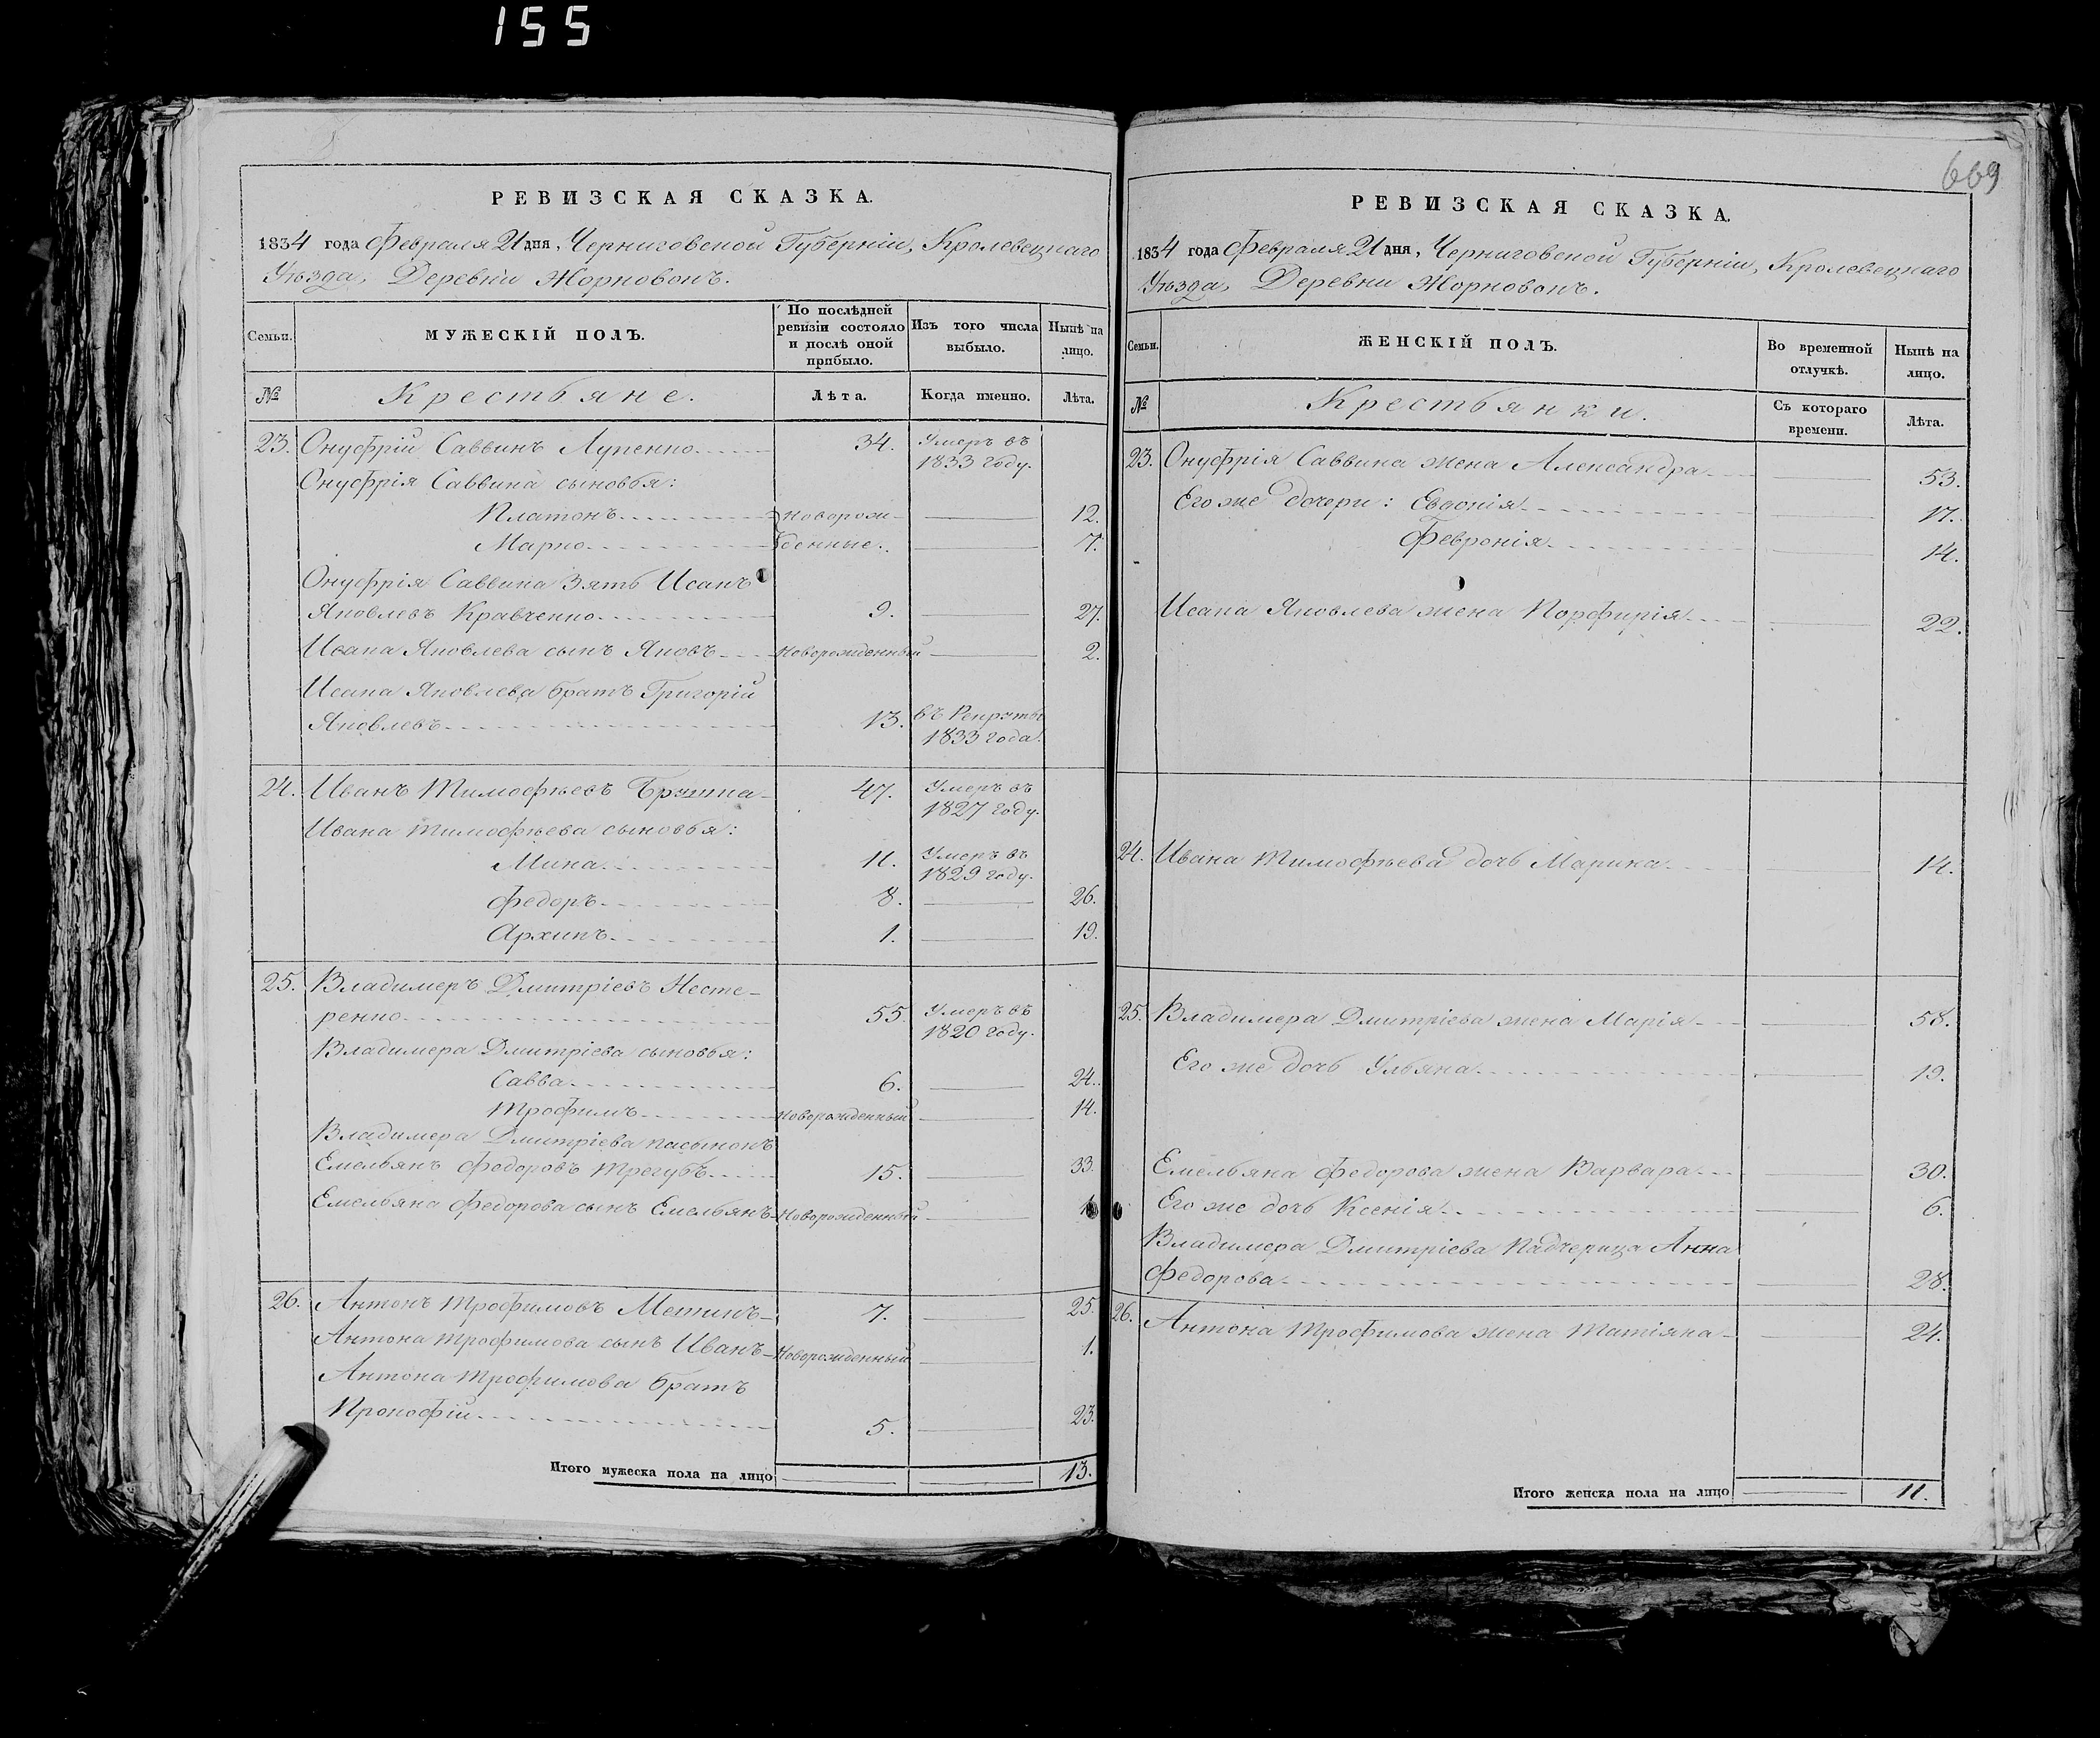 155
РЕВИЗСКАЯ СКАЗКА.
1834 года Февраля 21 дня, Черниговской Губерніи, Кролевецкаго
Уѣзда, Деревни Жорновокъ.
Семьи. МУЖЕСКІЙ ПОЛЪ. По послѣдней ревизіи состояло и послѣ оной прибыло. Изъ того числа выбыло. Нынѣ на лицо.
№ Крестьяне. Лѣта. Когда именно. Лѣта.
23. Онуфрій Саввинъ Лупенко 34. Умеръ въ
1833 году.
Онуфрія Саввина сыновья:
Платонъ Новорож- 12.
Марко денные. 7.
Онуфрія Саввина Зять Исакъ
Яковлевъ Кравченко 9. 27.
Исака Яковлева сынъ Яковъ Новорожденный 2.
Исака Яковлева братъ Григорій
Яковлевъ 13. въ Рекруты
1833 года.
24. Иванъ Тимофѣевъ 47. Умеръ въ
1827 году.
Ивана Тимофѣева сыновья:
Мина 11. Умеръ въ
1829 году.
Федоръ 8. 26.
Архипъ 1. 19.
25. Владимеръ Дмитріевъ Несте-
ренко 55. Умеръ въ
1820 году.
Владимера Дмитріева сыновья:
Савва 6. 24.
Трофимъ Новорожденный 14.
Владимера Дмитріева пасынокъ
Емельянъ Федоровъ Трегубъ 15. 33.
Емельяна Федорова сынъ Емельянъ Новорожденный 1.
26. Антонъ Трофимовъ 7. 25.
Антона Трофимова сынъ Иванъ Новорожденный 1.
Антона Трофимова братъ
Прокофій 5. 23.
Итого мужеска пола на лицо 13.
669
РЕВИЗСКАЯ СКАЗКА.
1834 года Февраля 21 дня, Черниговской Губерніи, Кролевецкаго
Уѣзда, Деревни Жорновокъ.
Семьи. ЖЕНСКІЙ ПОЛЪ. Во временной отлучкѣ. Нынѣ на лицо.
№ Крестьянки. Съ котораго времени. Лѣта.
23. Онуфрія Саввина жена Александра 53.
Его же дочери: Евдокія 17.
Февронія 14.
Исака Яковлева жена Порфирія 22.
24. Ивана Тимофѣева дочь Марина 14.
25. Владимера Дмитріева жена Марія 58.
Его же дочь Ульяна 19.
Емельяна Федорова жена Варвара 30.
Его же дочь Ксенія 6.
Владимера Дмитріева Падчерица Анна
Федорова 28.
26. Антона Трофимова жена Татіяна 24.
Итого женска пола на лицо 11.